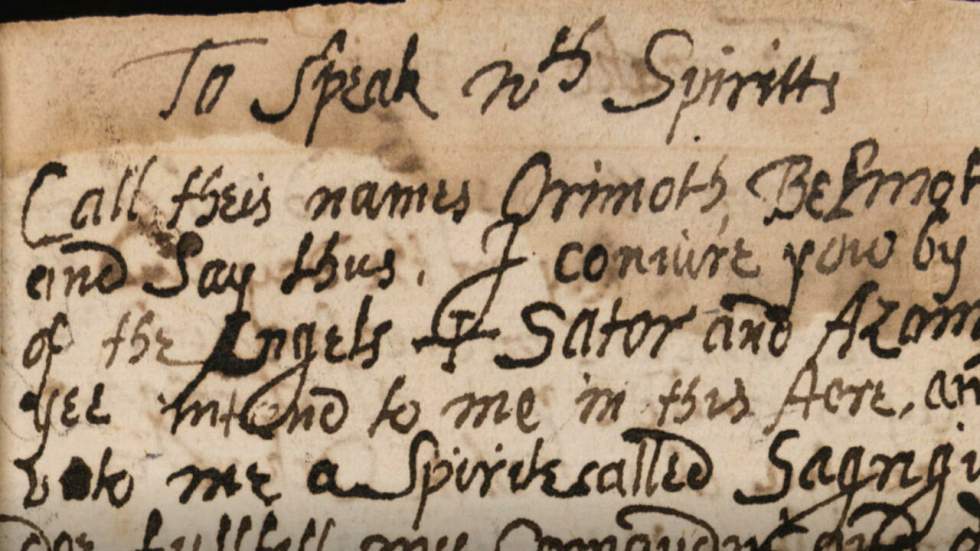 To Speak wth Spiritts
Call theis names Orimoth, Belmot
and Say thus. I coniure yow by
of the Angels ✠ Sator and Azam
yee intend to me in this Aore, an
vnto me a Spirite called Sagrigi
doe fullfill my Comaundmts and